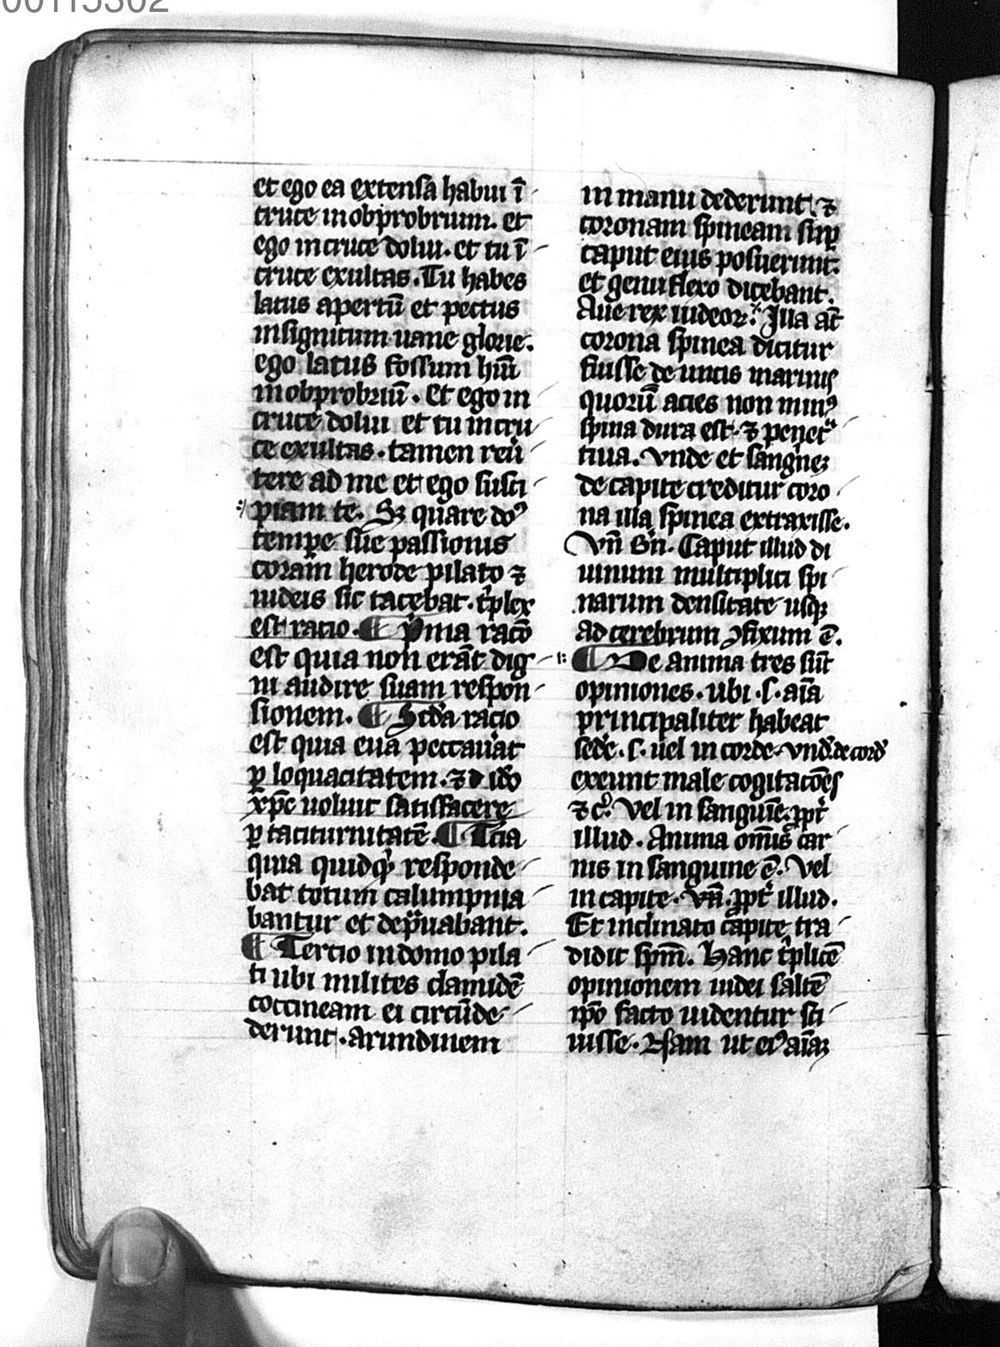 00115302
et ego ea extensa habui ĩ
cruce in obprobrium. et
ego in cruce dolui. et tu ĩ
cruce exultas. Tu habes
latus apertũ et pectus
insignitum uane glorie.
ego latus fossum hui᷑
in obprobriũ. Et ego in
cruce dolui et tu in cru
ce exultas. tamen reũ
tere ad me et ego susci
piam te. Sꝫ quare doꝰ
tempe sue passionis
coram herode pilato ⁊
iudeis sic tacebat. t͛plex
est racio. ¶ P͛ma racõ
est quia non erãt dig
ni audire suam respon
sionem. ¶ Scd̃a racio
est quia eua peccauat
ꝑ loquacitatem. ⁊ iõ
xp̃c uoluit satisfacere
ꝑ taciturnitatẽ. ¶ Tcia
quia quidq̃ꝫ responde
bat totum calumpnia
bantur et dep͛uabant.
¶ Tercio in domo pila
ti ubi milites clamidẽ
coccineam ei circũde
derunt. arundinem
in manu dederunt ⁊
coronam spineam suꝑ
caput eius posuerunt.
et genu flexo dicebant.
Aue rex iudeoꝝ. Illa aũt
corona spinea dicitur
fuisse de uncis marinis
quorũ acies non minꝰ
spina dura est. ⁊ penet͛
tiua. Vnde et sanguineꝫ
de capite creditur coro
na illa spinea extraxisse.
Vñ Bñ. Caput illud di
uinum multiplici spi
narum densitate usqꝫ
ad cerebrum ↄfixum ẽ.
¶ De anima tres sũt
opiniones. ubi .s. aĩa
principaliter habeat
sedẽ. s. uel in corde. vnd̃. de cord̾
exeunt male cogitacões
⁊ c̾. Vel in sanguĩe. ꝓpt̾
illud. Anima omĩs car
nis in sanguine ẽ. Vel
in capite. Vñ. ꝓpt̾ illud.
Et inclinato capite tra
didit sp̃m. Hanc t͛plicẽ
opinionem iudei saltẽ
ip̃o facto uidentur sci
uisse. Nam ut eiꝰ aĩaꝫ